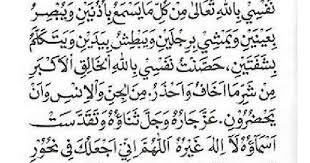 نَفْسِيْ بِاللّٰهِ تَعَالٰى مِنْ كُلِّ مَا يَسْمَعُ بِاُذُنَيْنِ وَيُبْصِرُ
بِعَيْنَيْنِ وَيَمْشِيْ بِرِجْلَيْنِ وَيَبْطِشُ بِيَدَيْنِ وَيَتَكَلَّمُ
بِشَفَتَيْنِ، حَصَّنْتُ نَفْسِيْ بِاللّٰهِ الْخَالِقِ الْاَكْبَرِ
مِنْ شَرِّ مَا اَخَافُ وَاَحْذَرُ، مِنَ الْجِنِّ وَالْاِنْسِ وَاَنْ
يَحْضُرُوْنِ. عَزَّ جَارُهُ وَجَلَّ ثَنَاؤُهُ وَتَقَدَّسَتْ
اَسْمَاؤُهُ وَلَا اِلٰهَ غَيْرُهُ اَللّٰهُمَّ اِنِّيْ اَجْعَلُكَ فِيْ نُحُوْرِ